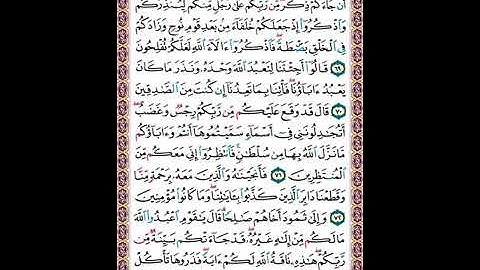 أَن جَآءَكُمْ ذِكْرٌ مِّن رَّبِّكُمْ عَلَىٰ رَجُلٍ مِّنكُمْ لِيُنذِرَكُمْ
وَٱذْكُرُوٓا۟ إِذْ جَعَلَكُمْ خُلَفَآءَ مِنۢ بَعْدِ قَوْمِ نُوحٍ وَزَادَكُمْ
فِى ٱلْخَلْقِ بَصْۜطَةً فَٱذْكُرُوٓا۟ ءَالَآءَ ٱللَّهِ لَعَلَّكُمْ تُفْلِحُونَ
٦٩ قَالُوٓا۟ أَجِئْتَنَا لِنَعْبُدَ ٱللَّهَ وَحْدَهُۥ وَنَذَرَ مَا كَانَ
يَعْبُدُ ءَابَآؤُنَا فَأْتِنَا بِمَا تَعِدُنَآ إِن كُنتَ مِنَ ٱلصَّـٰدِقِينَ
٧٠ قَالَ قَدْ وَقَعَ عَلَيْكُم مِّن رَّبِّكُمْ رِجْسٌ وَغَضَبٌ
أَتُجَـٰدِلُونَنِى فِىٓ أَسْمَآءٍ سَمَّيْتُمُوهَآ أَنتُمْ وَءَابَآؤُكُم
مَّا نَزَّلَ ٱللَّهُ بِهَا مِن سُلْطَـٰنٍ فَٱنتَظِرُوٓا۟ إِنِّى مَعَكُم مِّنَ
ٱلْمُنتَظِرِينَ ٧١ فَأَنجَيْنَـٰهُ وَٱلَّذِينَ مَعَهُۥ بِرَحْمَةٍ مِّنَّا
وَقَطَعْنَا دَابِرَ ٱلَّذِينَ كَذَّبُوا۟ بِـَٔايَـٰتِنَا وَمَا كَانُوا۟ مُؤْمِنِينَ
٧٢ وَإِلَىٰ ثَمُودَ أَخَاهُمْ صَـٰلِحًا قَالَ يَـٰقَوْمِ ٱعْبُدُوا۟ ٱللَّهَ
مَا لَكُم مِّنْ إِلَـٰهٍ غَيْرُهُۥ قَدْ جَآءَتْكُم بَيِّنَةٌ مِّن
رَّبِّكُمْ هَـٰذِهِۦ نَاقَةُ ٱللَّهِ لَكُمْ ءَايَةً فَذَرُوهَا تَأْكُلْ